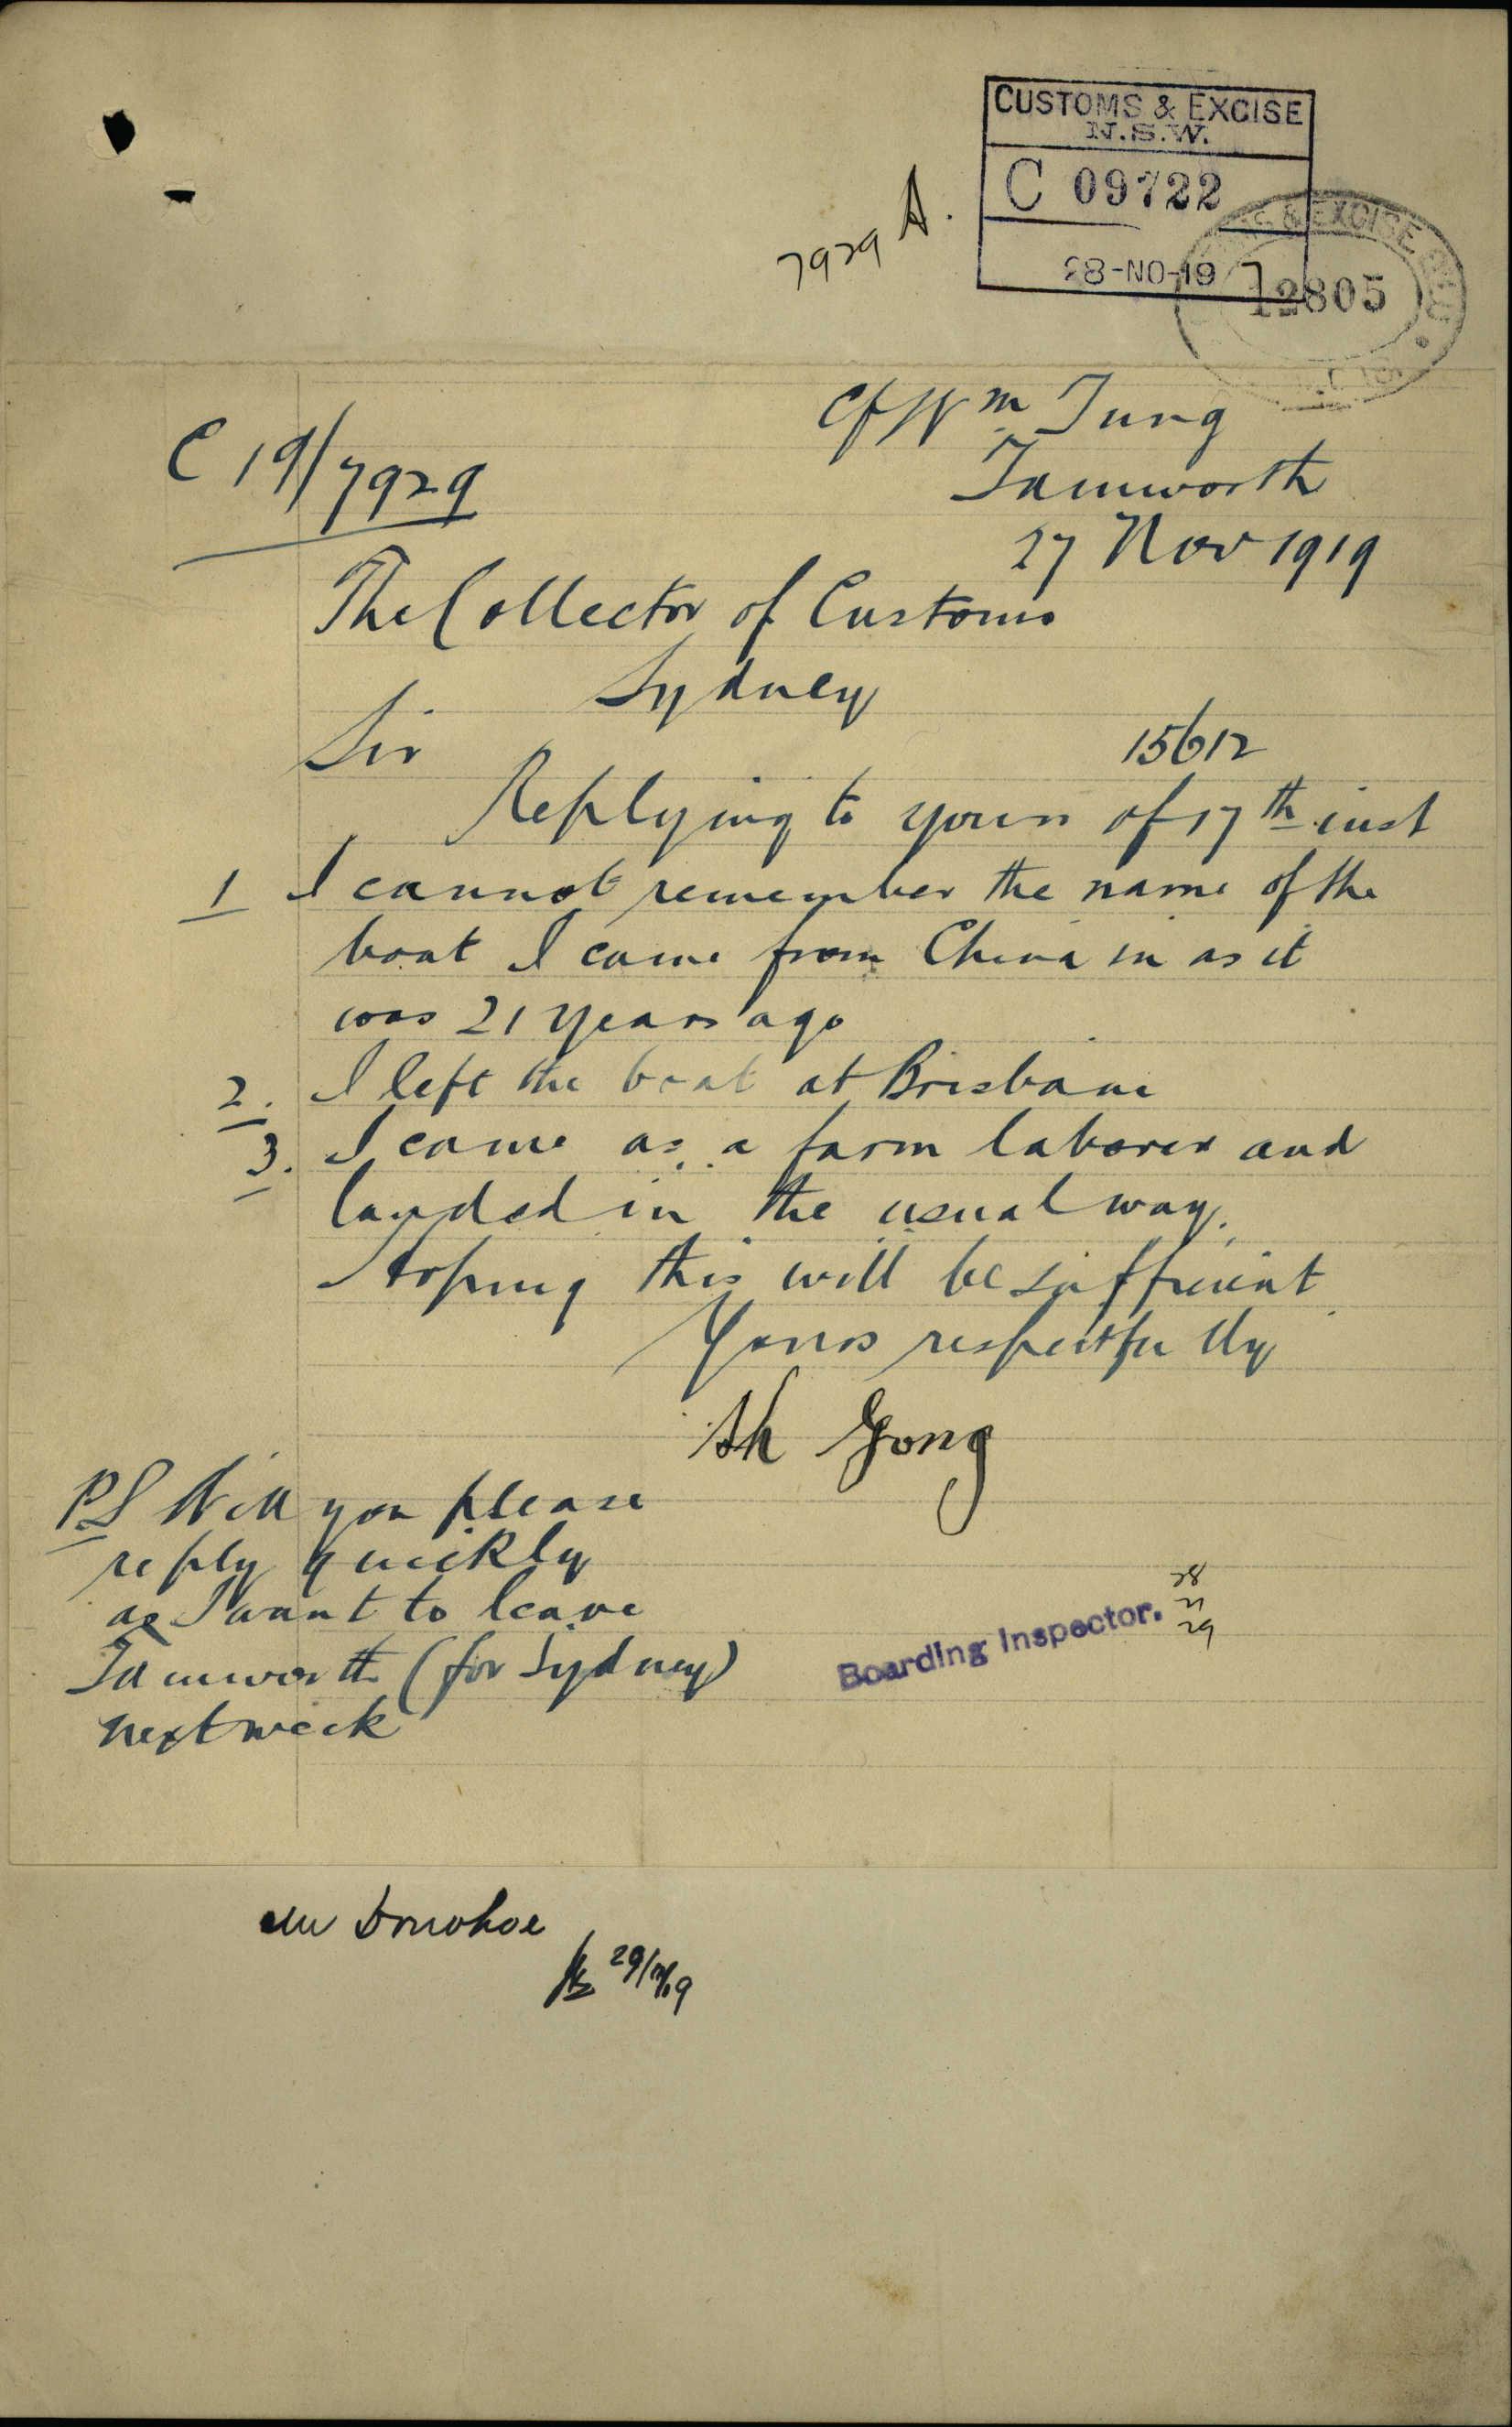 CUSTOMS & EXCISE
N.S.W.
C 09722
28-NO-19
7929 A.
& EXCISE
12805
C/- Wm Tung
Tamworth
27 Nov 1919
C 19/7929
The Collector of Customs
Sydney
Sir
15612
Replying to yours of 17th inst
1 I cannot remember the name of the
boat I came from China in as it
was 21 years ago
2. I left the boat at Brisbane
3. I came as a farm laborer and
landed in the usual way.
Hoping this will be sufficient
Yours respectfully
Ah Gong
PS Will you please
reply quickly
as I want to leave
Tamworth (for Sydney)
next week
Boarding Inspector.
28
11
29
Mr Donohoe
29/11/19